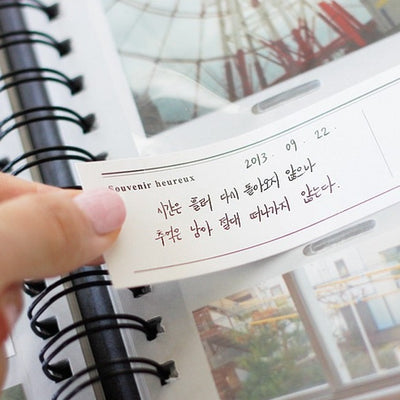 Souvenir heureux
2013. 09. 22.
시간은 흘러 다시 돌아오지 않으나
추억은 남아 절대 떠나가지 않는다.